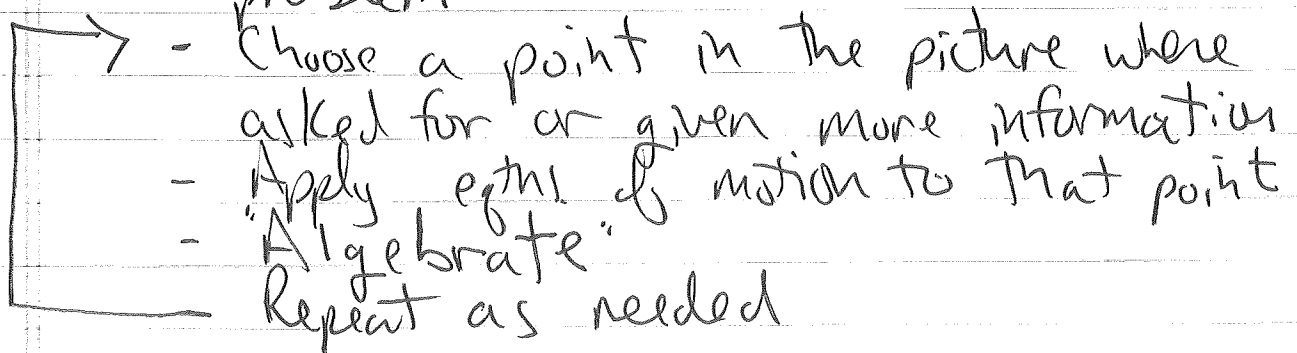 - Choose a point in the picture where
asked for or given more information
- Apply eqtns. of motion to that point
- "Algebrate"
Repeat as needed